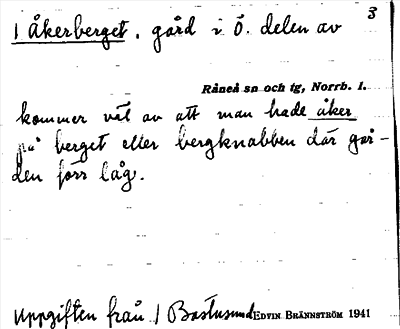 3
1 Åkerberget, gård i Ö. delen av
Råneå sn och tg, Norrb. l.
kommer väl av att man hade åker
på berget eller bergknabben där går-
den förr låg.
Uppgiften från 1 Bastusund EDVIN BRÄNNSTRÖM 1941